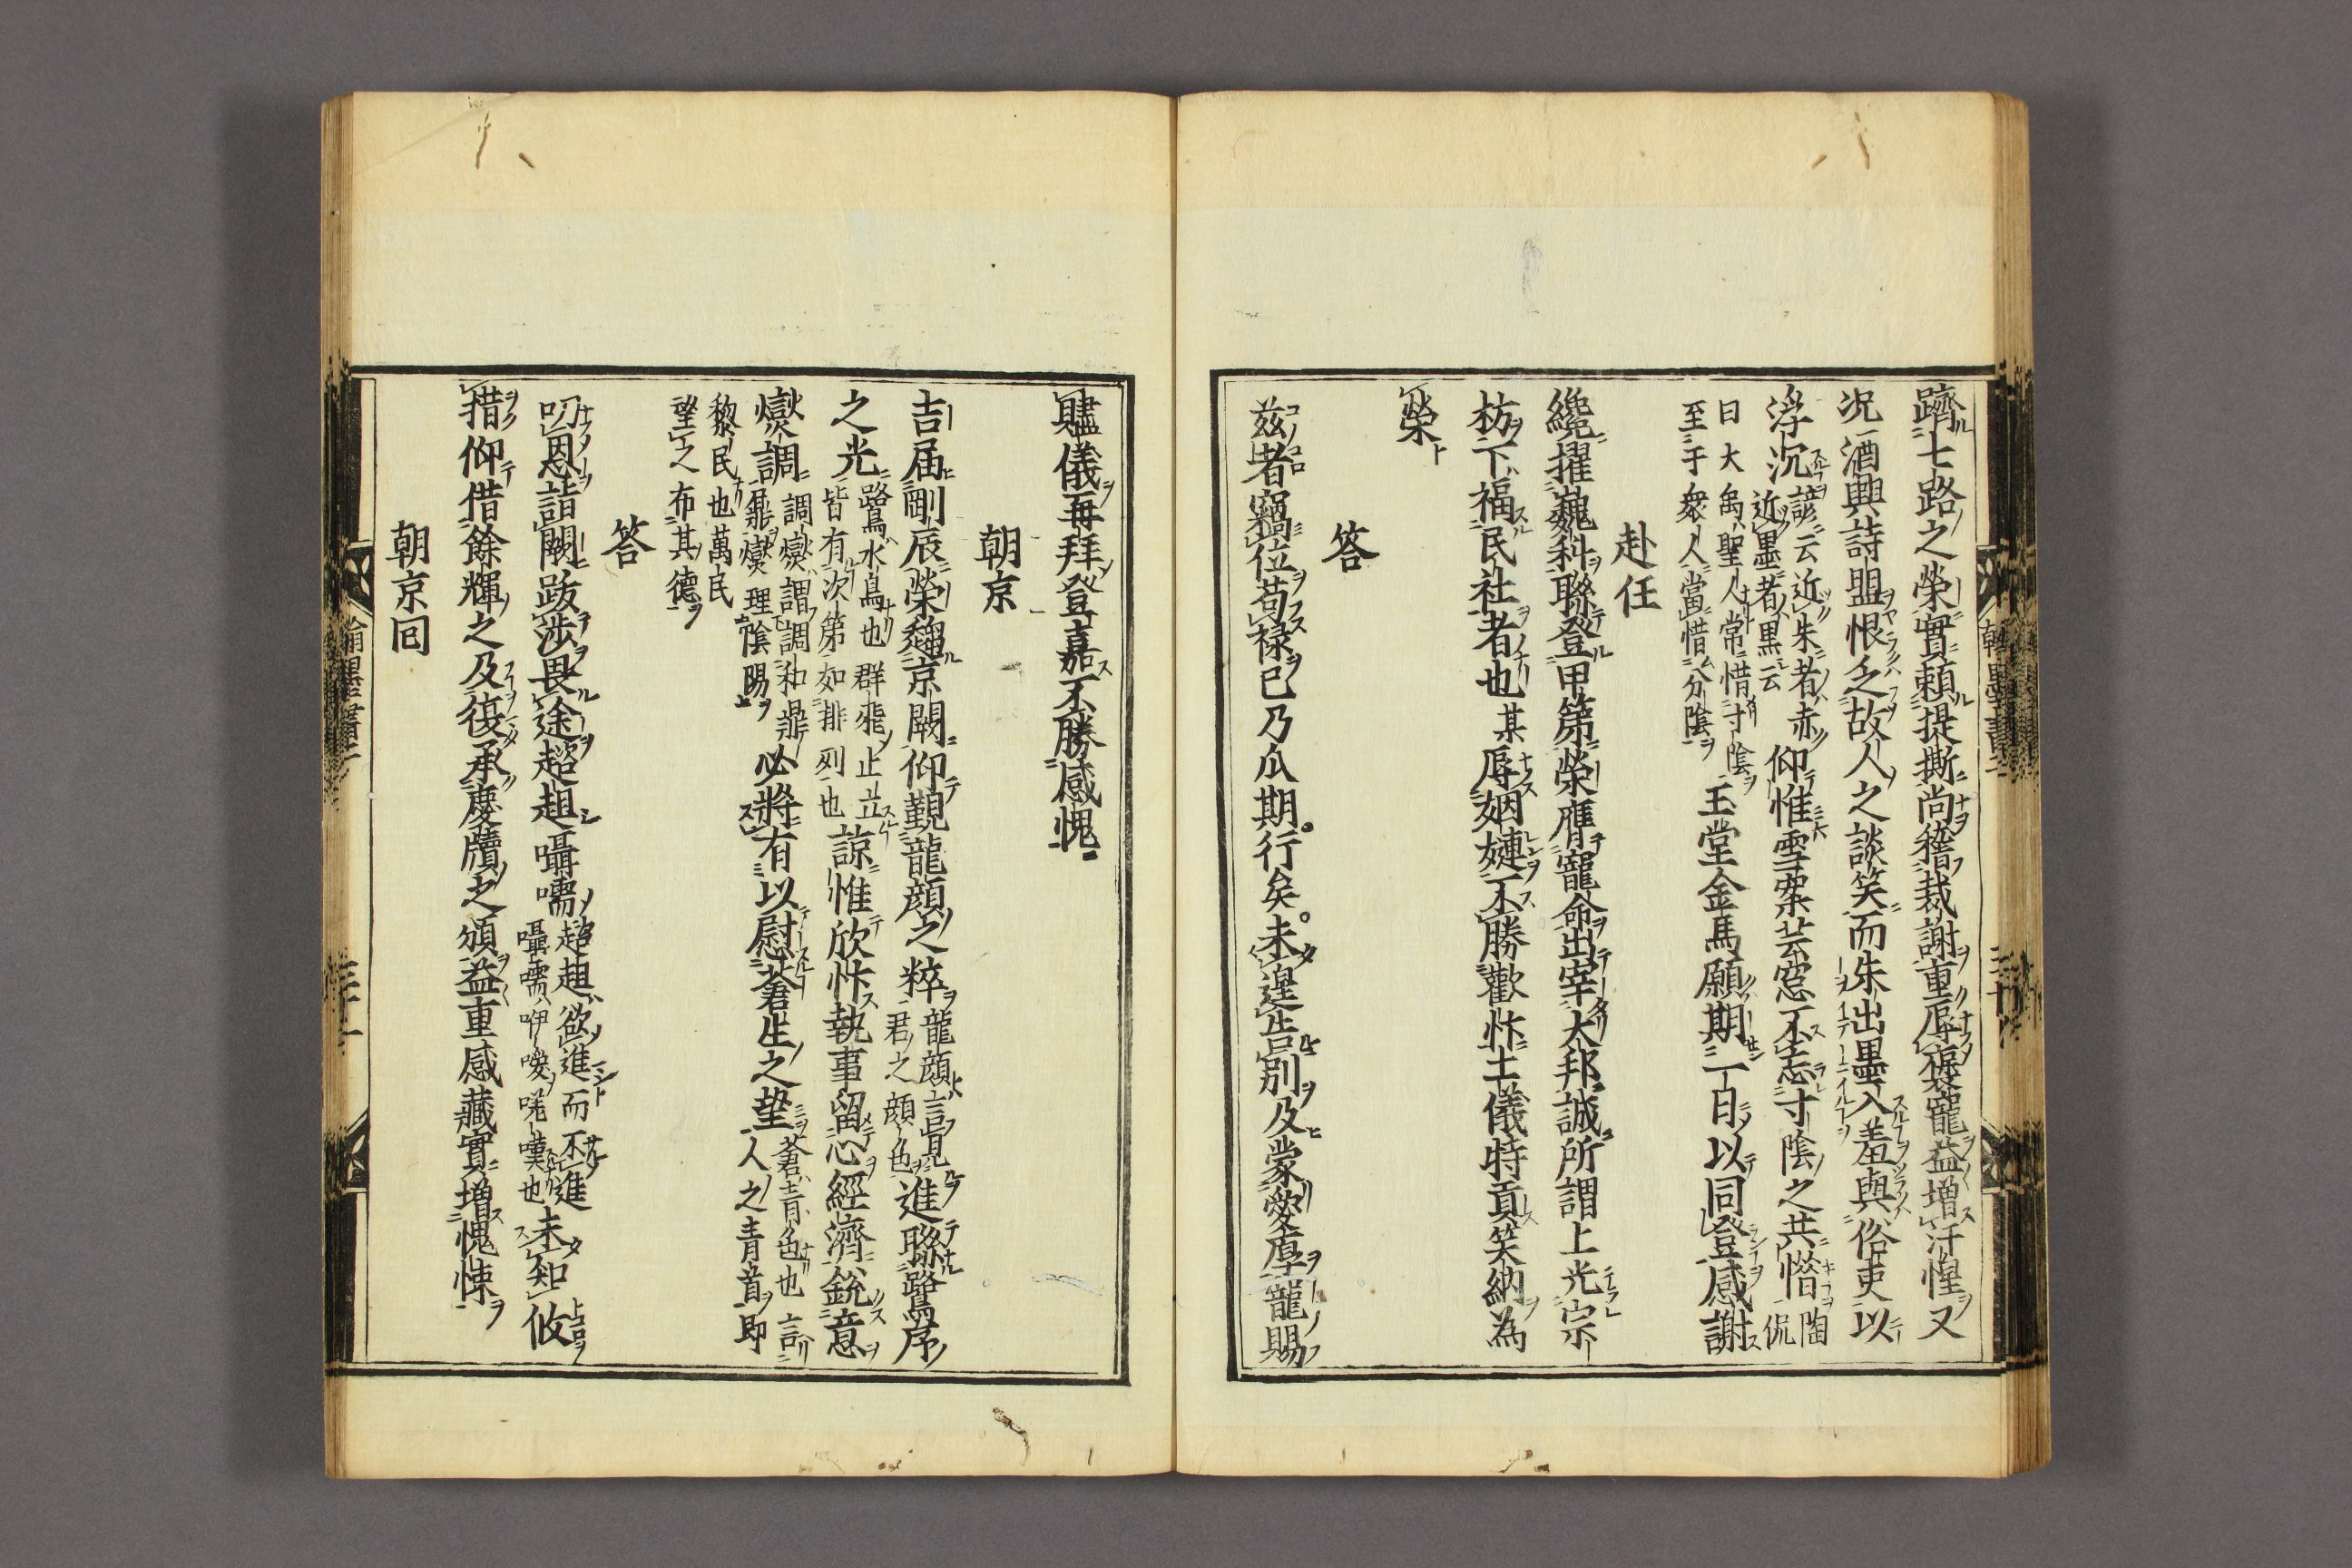 躋七路之榮實頼提撕尚稽裁謝重辱褒寵益増汗惶又
况酒興詩盟恨乏故人之談笑而朱出墨入羞與俗吏以
浮沉諺云近朱者赤
近墨者黒云仰惟雪案芸窓不忘寸陰之共惜陶侃
曰大禹聖人常惜寸陰
至于衆人當惜分陰玉堂金馬願期一日以同登感謝
赴任
纔擢巍科聯登甲第榮膺寵命出宰大邦誠所謂上光宗
枋下福民社者也某辱姻婕不勝歡忭土儀特貢笑納為
榮
答
茲者竊位苟禄已乃瓜期行矣未遑告別及蒙愛厚寵賜
贐儀再拜登嘉不勝感愧
朝京
吉届剛辰榮趨京闕仰覲龍顔之粹龍顔言見
君之顔色進聯鷺序
之光鷺水鳥也群飛止立
皆有次第如排列也諒惟欣忭執事留心經濟鋭意
燮調調燮謂調和鼎
鼐燮理陰陽必將有以慰蒼生之望蒼青色也言
人之青首即
黎民也萬民
望之布其德
答
叨恩詣闕跋渉畏途趦趄囁嚅趦趄欲進而不進
囁嚅咿嚘嗟嘆也未知攸
措仰借餘輝之及復承慶牘之頒益重感藏實増愧悚
朝京回
翰墨書二
三十
三十一